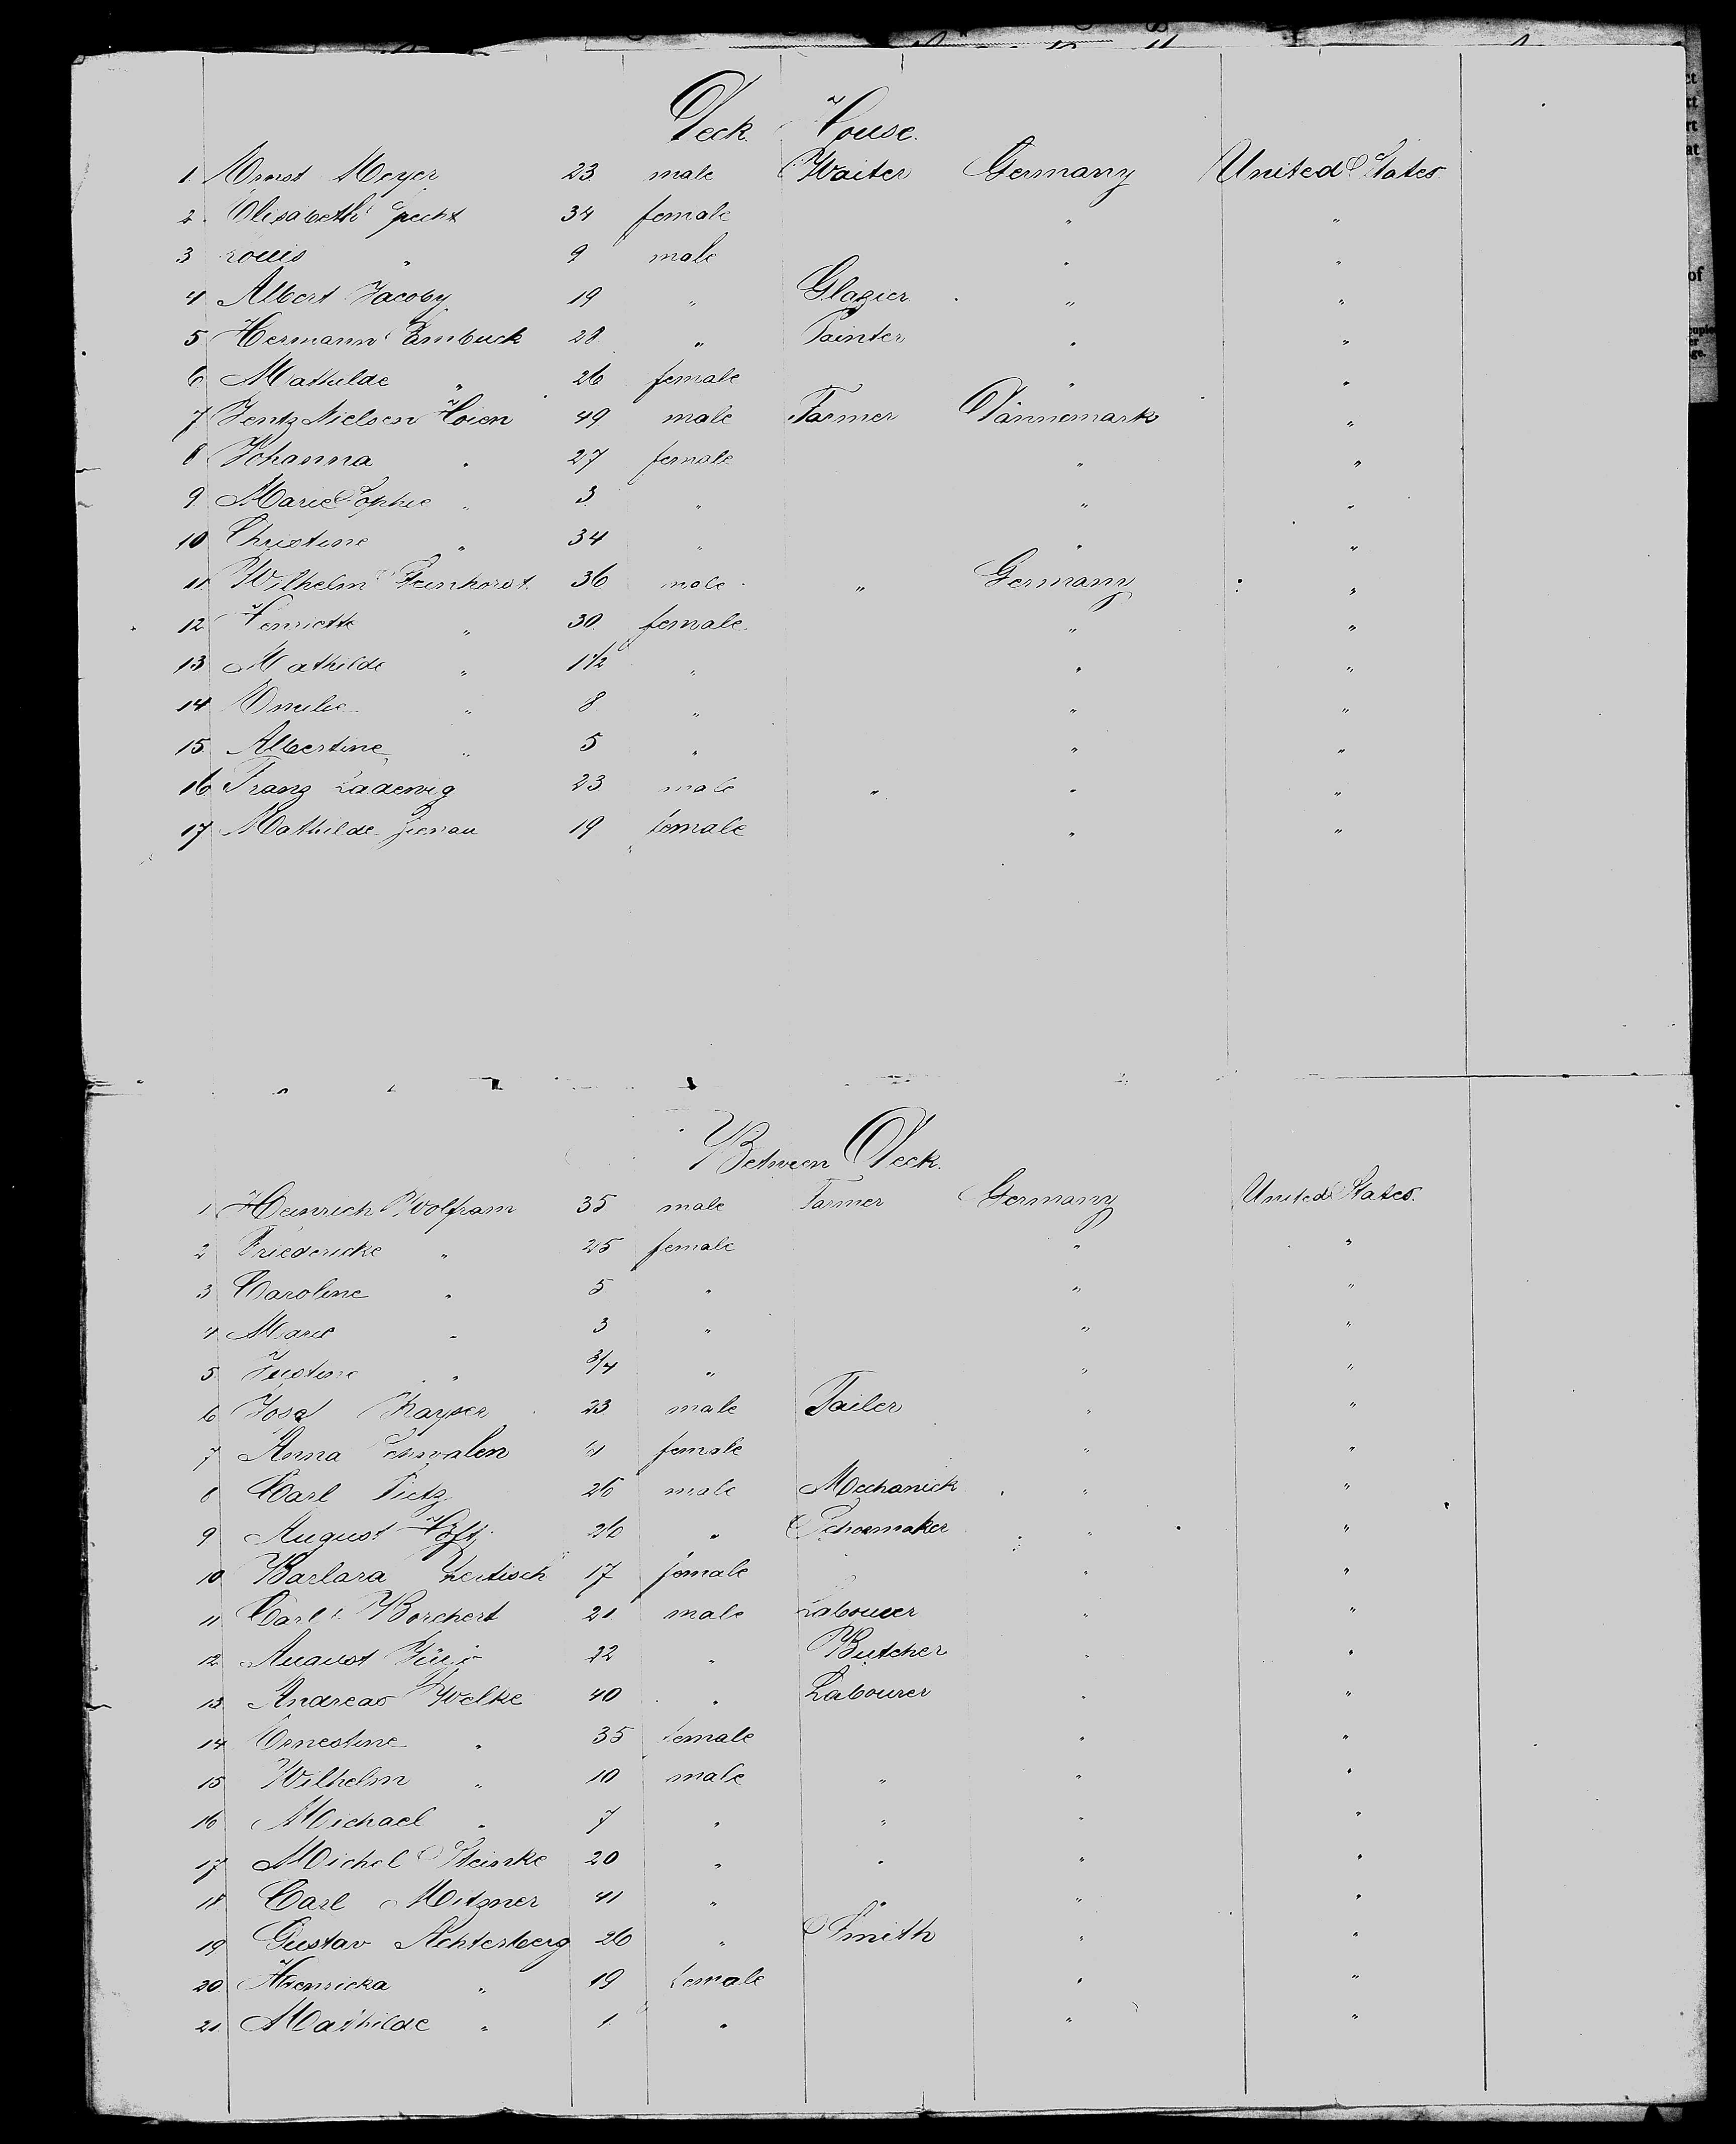 Deck House.
1. Ernst Meyer 23 male Waiter Germany United States.
2. Elisabeth Specht 34 female " "
3 Louis " 9 male " "
4 Albert Jacoby 19 " Glazier " "
5 Hermann 28 " Painter " "
6 Mathilde " 26 female " "
7 Jentz Nielsen Hoien 49 male Farmer Dännemark "
8 Johanna " 27 female " "
9 Marie Sophie " 3 " " "
10 Christine " 34 " " "
11 Wilhelm Steinhorst 36 male " Germany "
12 Henriette " 30 female " "
13 Mathilde " 11/2 " " "
14 Emilie " 8 " " "
15 Albertine " 5 " " "
16 Franz Ladewig 23 male " " "
17 Mathilde 19 female " "
Between Deck.
1 Heinrich Wolfram 35 male Farmer Germany United States.
2 Friedericke " 25 female " "
3 Caroline " 5 " " "
4 Marie " 3 " " "
5 Justine " 3/4 " " "
6 Josef Kayser 23 male Tailer " "
7 Anna female " "
8 Carl Tietz 26 male Mechanick " "
9 August 26 " Schoemaker " "
10 Barbara 17 female " "
11 Carl Borchert 21 male Labourer " "
12 August 22 " Butcher " "
13 Andreas Welke 40 " Labourer " "
14 Ernestine " 35 female " "
15 Wilhelm " 10 male " " "
16 Michael " 7 " " " "
17 Michel Steinke 20 " " " "
18 Carl Mitzner 41 " " " "
19 Gustav Achterberg 26 " Smith " "
20 Henricka " 19 female " "
21 Mathilde " 1 " " "